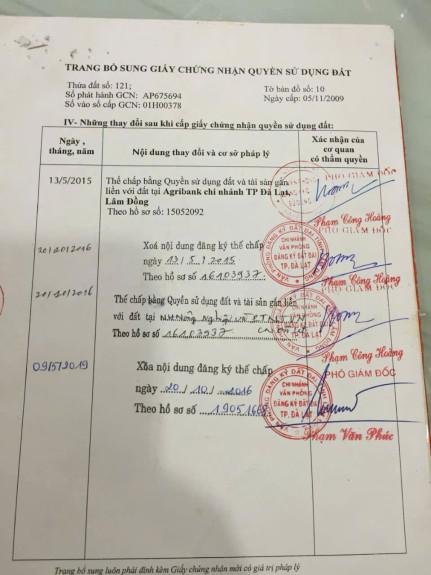 TRANG BỔ SUNG GIẤY CHỨNG NHẬN QUYỀN SỬ DỤNG ĐẤT
Thửa đất số: 121;
Tờ bản đồ số: 10
Số phát hành GCN: AP675694
Ngày cấp: 05/11/2009
Số vào sổ cấp GCN: 01H00378
IV- Những thay đổi sau khi cấp giấy chứng nhận quyền sử dụng đất:
Ngày, tháng, năm
Nội dung thay đổi và cơ sở pháp lý
Xác nhận của cơ quan có thẩm quyền
13/5/2015
Thế chấp bằng Quyền sử dụng đất và tài sản gắn
liền với đất tại Agribank chi nhánh TP Đà Lạt,
Lâm Đồng
Theo hồ sơ số: 15052092
PHÓ GIÁM ĐỐC
Phạm Công Hoàng
20/10/2016
Xoá nội dung đăng ký thế chấp
ngày 13/5/2015
Theo hồ sơ số 16103937
PHÓ GIÁM ĐỐC
CHI NHÁNH
VĂN PHÒNG
ĐĂNG KÝ ĐẤT ĐAI
TP. ĐÀ LẠT
Phạm Công Hoàng
20/10/2016
Thế chấp bằng Quyền sử dụng đất và tài sản gắn liền
với đất tại
Theo hồ sơ số 16103937
PHÓ GIÁM ĐỐC
Phạm Công Hoàng
09/5/2019
Xóa nội dung đăng ký thế chấp
ngày 20/10/2016
Theo hồ sơ số
PHÓ GIÁM ĐỐC
CHI NHÁNH
VĂN PHÒNG
ĐĂNG KÝ ĐẤT ĐAI
TP. ĐÀ LẠT
Phạm Văn Phúc
Trang bổ sung luôn phải đính kèm Giấy chứng nhận mới có giá trị pháp lý